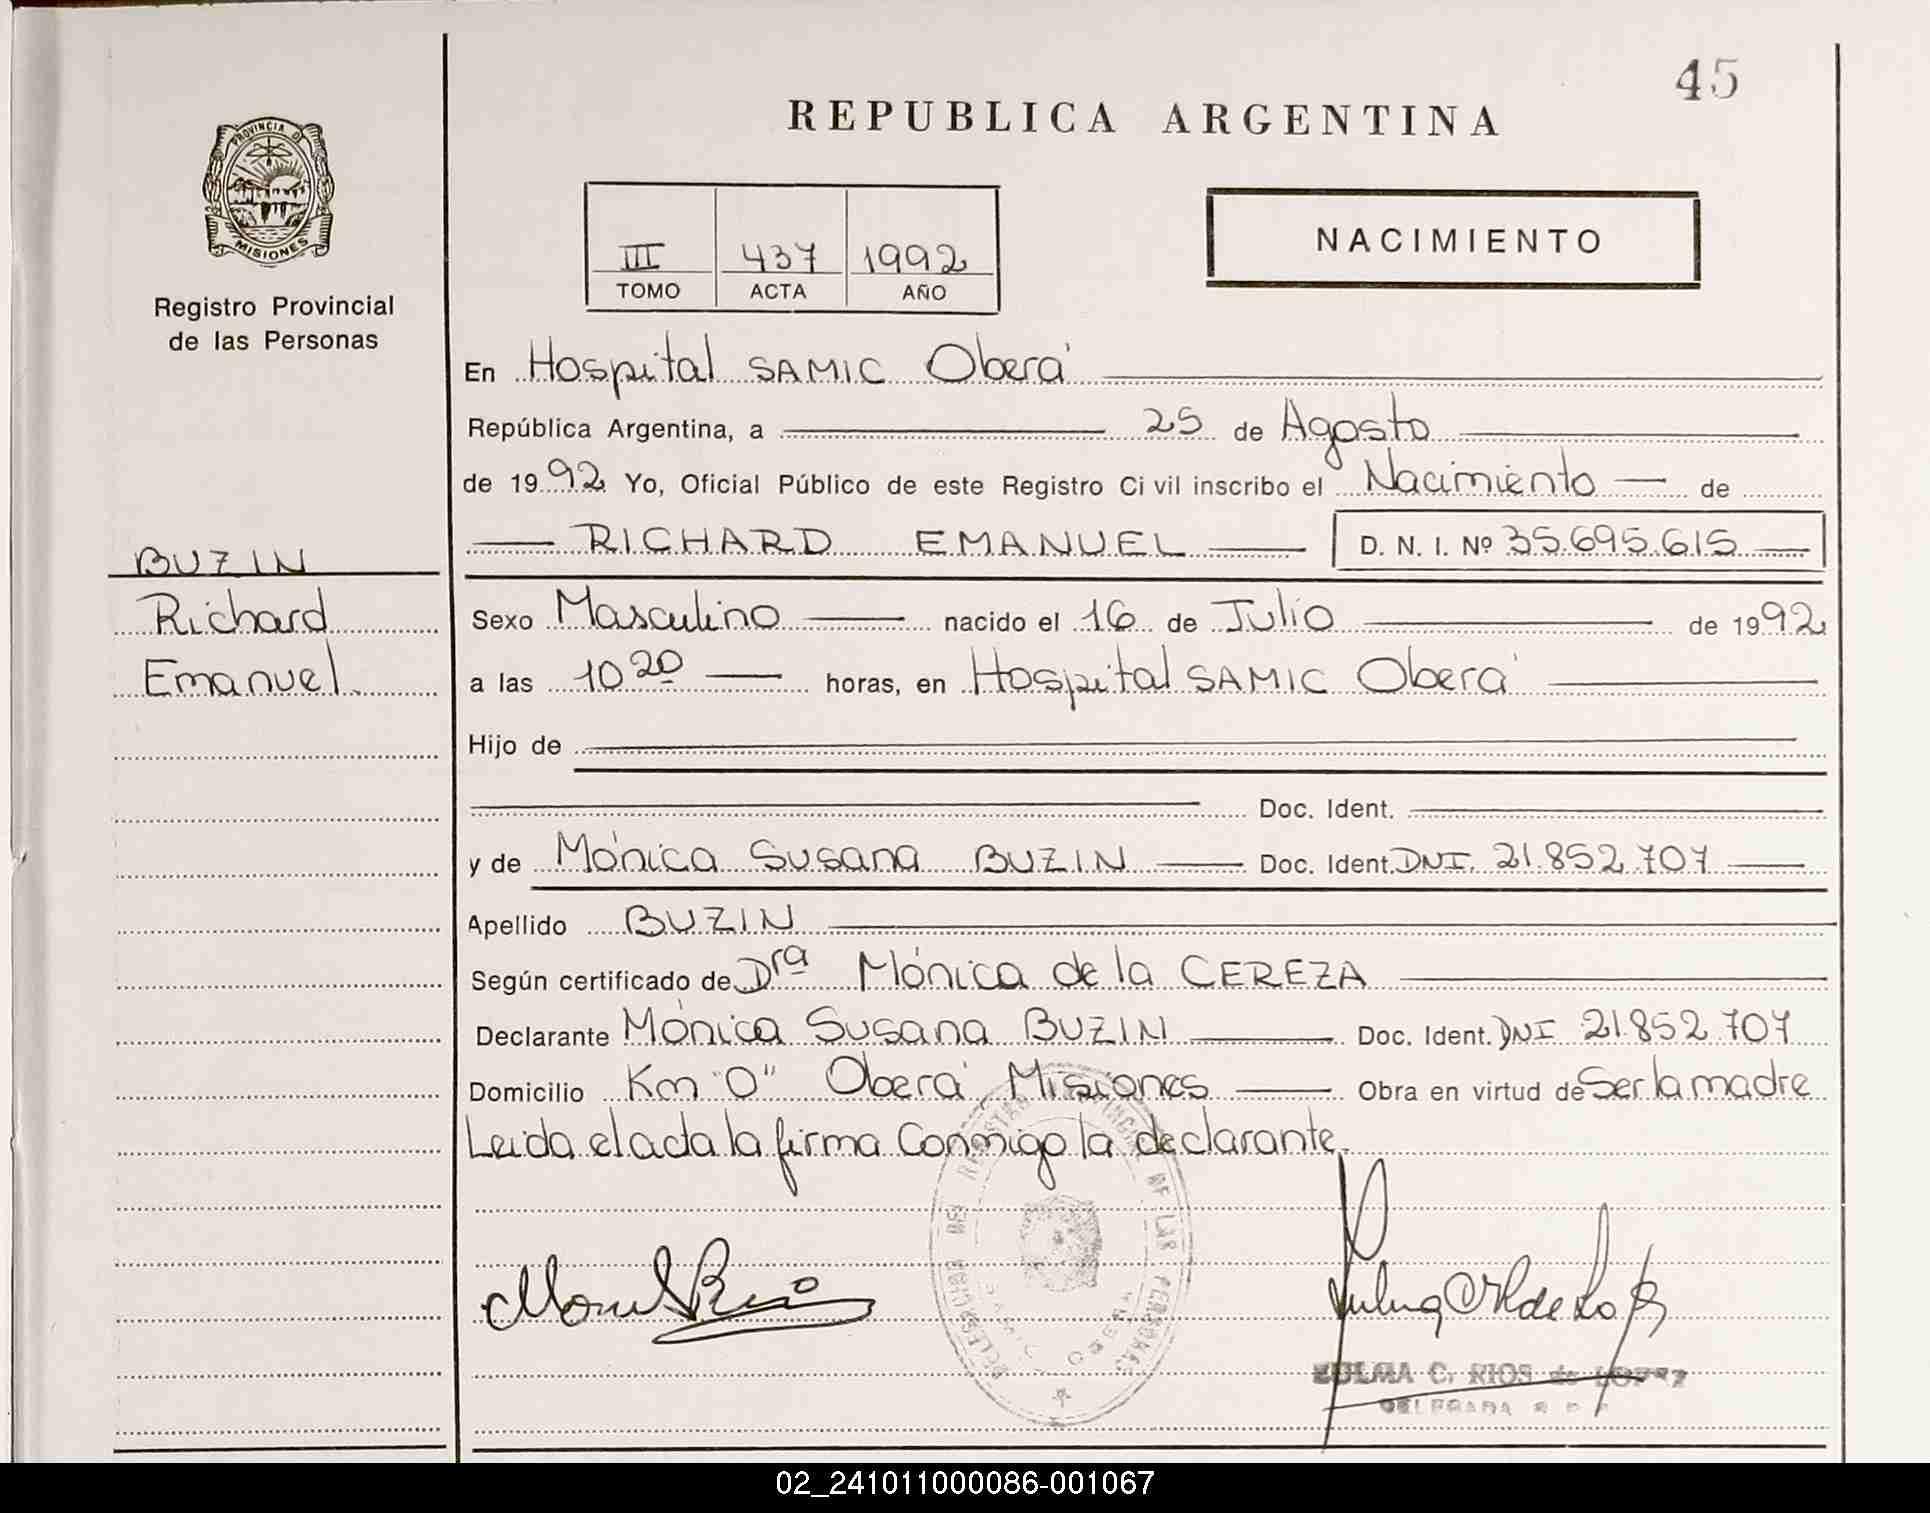 45
REPUBLICA ARGENTINA
PROVINCIA DE
MISIONES
Registro Provincial
de las Personas
III 437 1992
TOMO ACTA AÑO
NACIMIENTO
En Hospital SAMIC Oberá
República Argentina, a 25 de Agosto
de 1992 Yo, Oficial Público de este Registro Civil inscribo el Nacimiento de
RICHARD EMANUEL D. N. I. Nº 35.695.615
BUZIN
Richard
Emanuel
Sexo Masculino nacido el 16 de Julio de 1992
a las 10 20 horas, en Hospital SAMIC Oberá
Hijo de
Doc. Ident.
y de Mónica Susana BUZIN Doc. Ident. DNI. 21.852.707
Apellido BUZIN
Según certificado de Dra Mónica de la CEREZA
Declarante Mónica Susana BUZIN Doc. Ident. DNI 21.852.707
Domicilio Km "0" Oberá Misiones Obra en virtud de Ser la madre
Leida el acta la firma Conmigo la declarante.
DE LAS PERSONAS
ZULMA C. RIOS de LOPEZ
DELEGADA
02_241011000086-001067